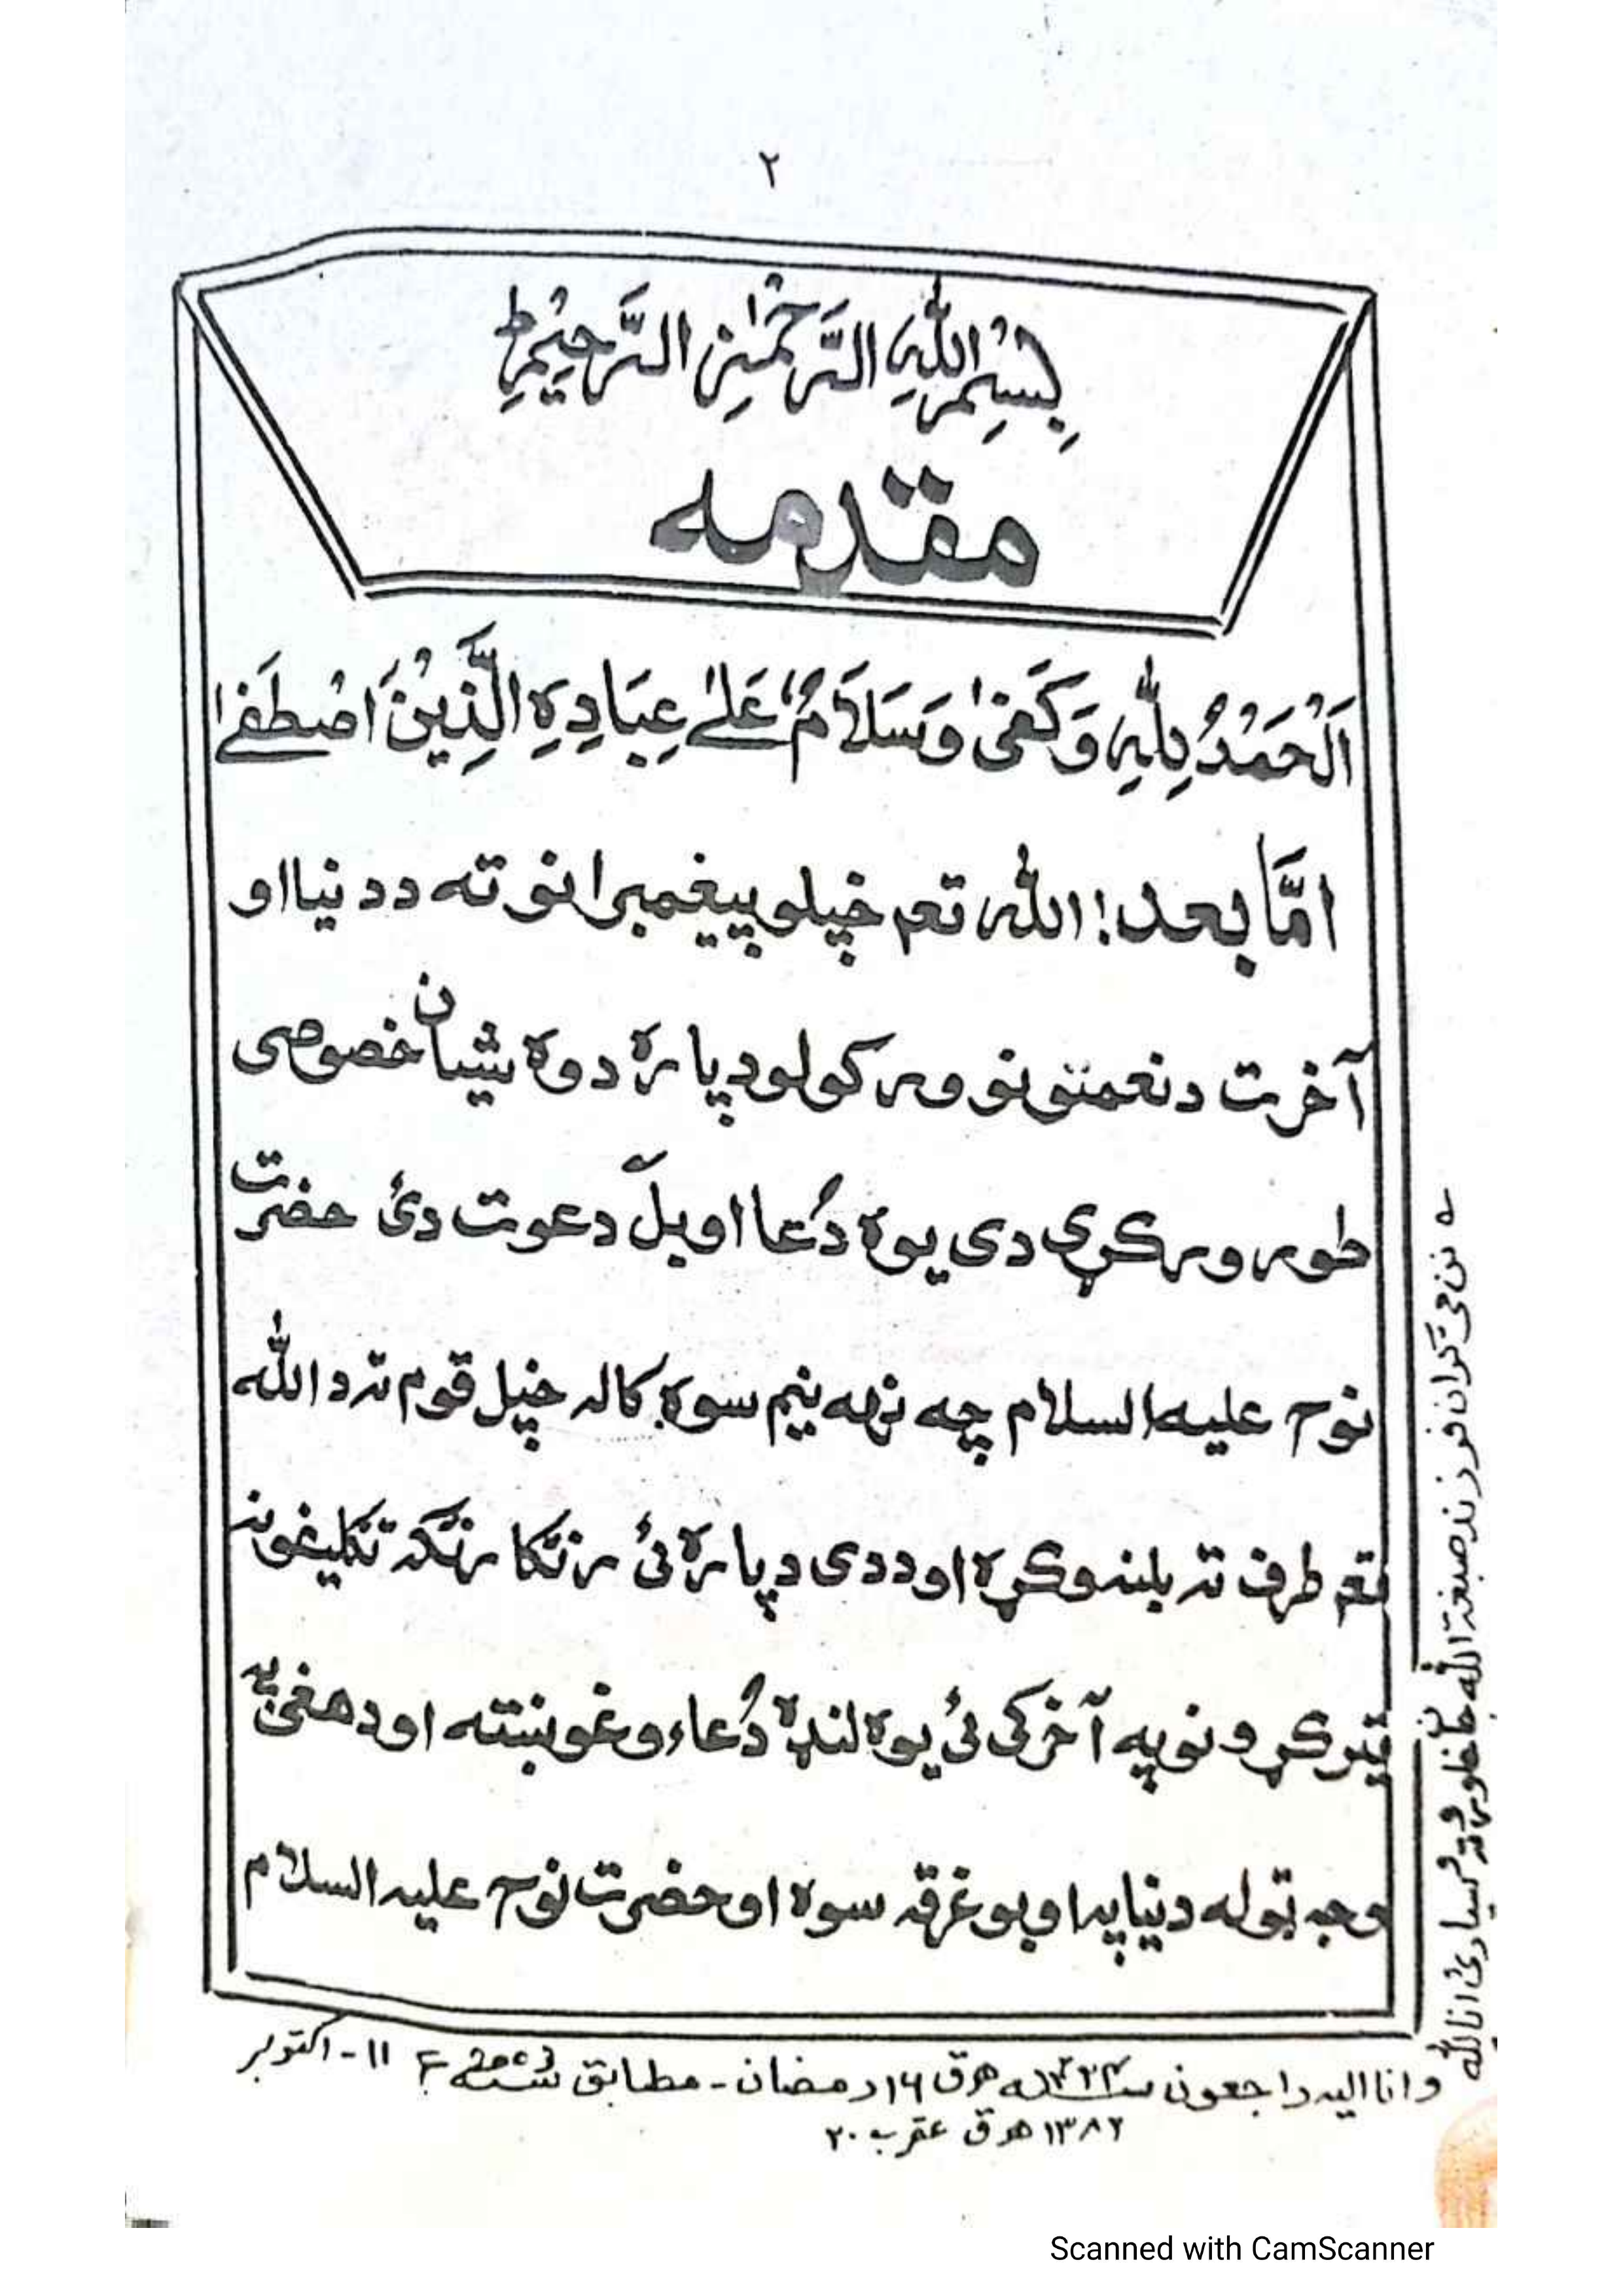 ۲
بِسْمِ اللّٰهِ الرَّحْمٰنِ الرَّحِيْمِ ط
مقدمه
اَلْحَمْدُ لِلّٰهِ وَكَفىٰ وَسَلَامٌ عَلىٰ عِبَادِهِ الَّذِيْنَ اصْطَفىٰ
امَّا بعد! اللّٰه تعم خپلو پيغمبرانو ته د دنيا او
آخرت د نعمتونو ورکولو د پاره دوه شيان خصوصی
طور ورکړي دی يوه دُعا او بلّ دعوت دئ حضرت
نوح عليه السلام چه نهه نيم سوه کاله خپل قوم ته د اللّٰه
تعم طرف ته بلنه وکړه او ددی د پاره ئ رنګا رنګه تکليفونه
تير کړو نو په آخر کی ئ يوه لنډه دُعاء وغوښته او د هغئ په
وجه ټوله دنيا په اوبو غرقه سوه او حضرت نوح عليه السلام
نن می ګران فرزند صبغة الله جان خاوروته وسپارئ انا لله
و انا اليه راجعون ۱۴۲۴ه هـ ق ۱۶ رمضان - مطابق 2003 ء ۱۱ - اکتوبر
۱۳۸۲ هـ ق عقرب ۲۰
Scanned with CamScanner